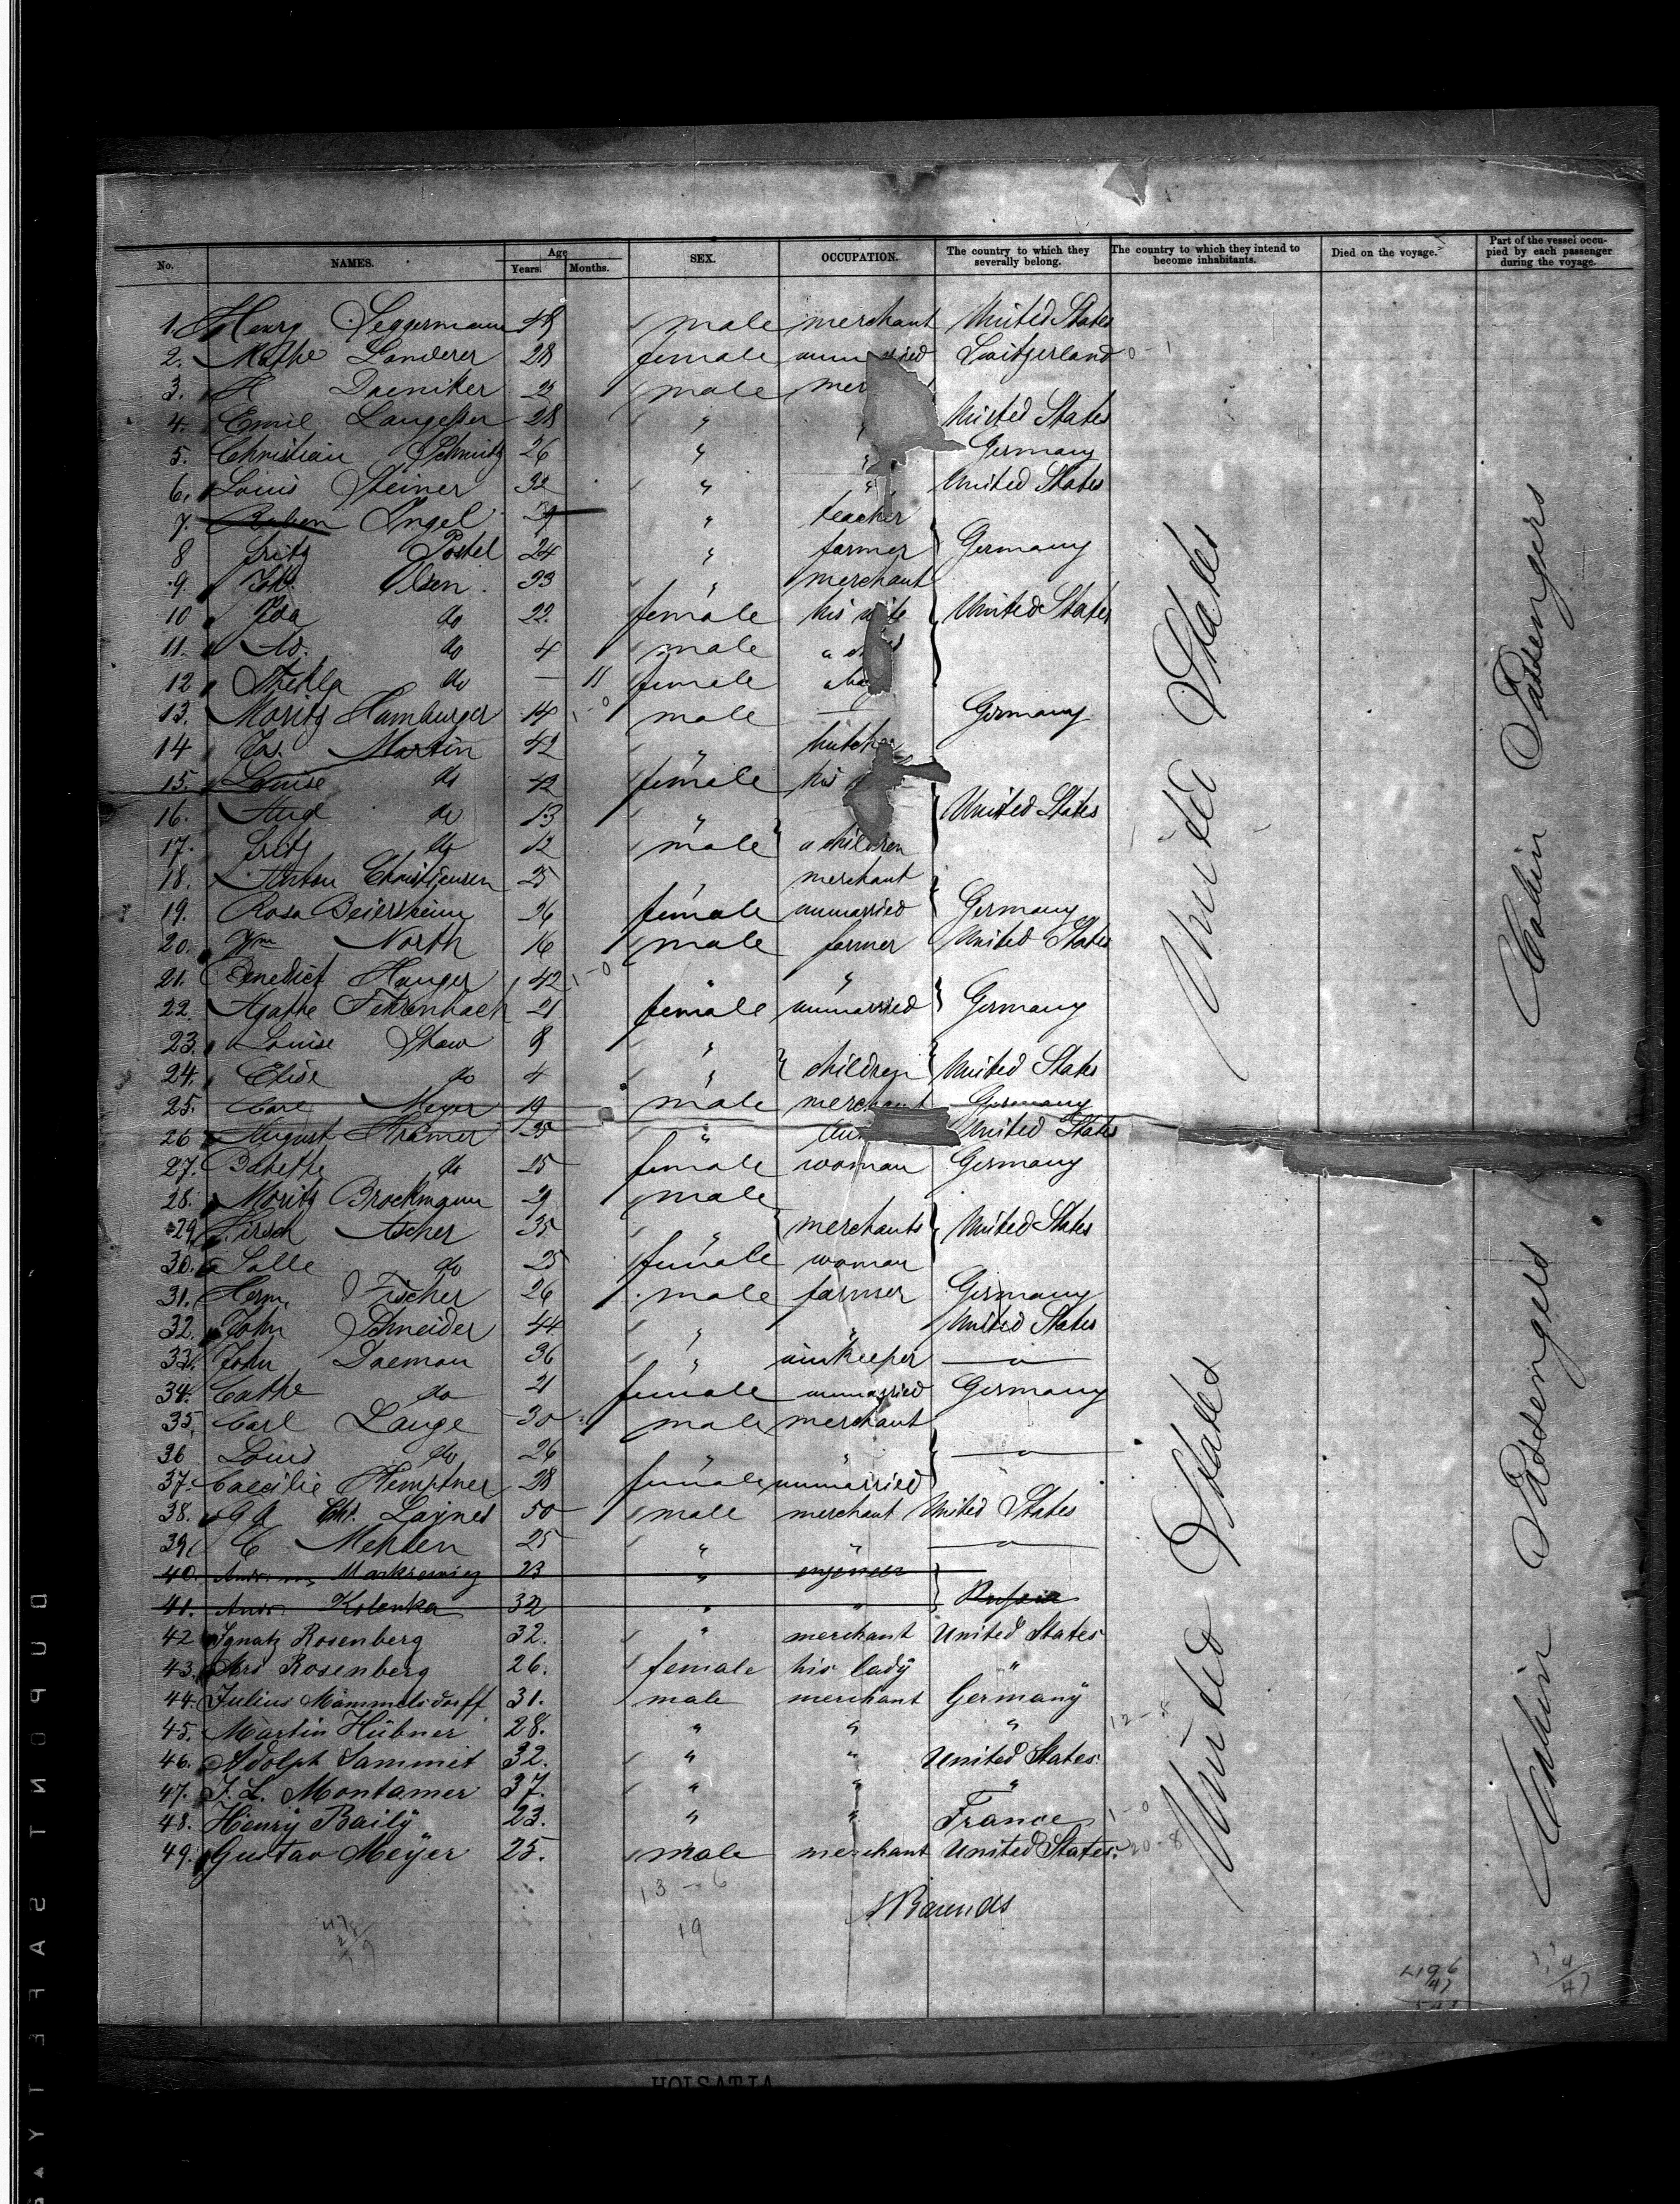 No. NAMES. Age Years. Months. SEX. OCCUPATION. The country to which they severally belong. The country to which they intend to become inhabitants. Died on the voyage. Part of the vessel occupied by each passenger during the voyage.
1. Henry Seggermann 48 male merchant United States
2. Mathe Landerer 28 female unmarried Switzerland 0-1
3. H Daeniker 22 male mer
4. Emil 28 " United States
5. Christian Schmitz 26 " " Germany
6. Louis Steiner 32 " " United States
7. Ruben Engel 29 " teacher
8 Fritz Postel 24 " farmer Germany
9. Joh. Olsen 33 " merchant
10 Ida do 22. female his wife United States
11. Ad. do 4 male a
12 Thekla do — 11 female
13. Moritz Hamburger 14 male — Germany
14 Ja. Martin 42 " butcher
15. Louise do 42 female his
16. Aug do 13 " United States
17. Fritz do 12 male a children
18. Anton Christiensen 25 " merchant
19. Rosa Beiersheim 26 female unmarried Germany
20. Wm North 16 male farmer United States
21. Benedict Hauger 42 " "
22. Agathe Fehrenbach 21 female unmarried Germany
23. Louise Shaw 8 "
24. Elise do 4 " children United States
25. Carl Meyer 19 male merchant Germany
26 August Kramer 35 " United States
27. Babette do 25 female woman Germany
28. Moritz Brockmann 29 male
29. Hirsch Ascher 35 " merchants United States
30. Salle do 25 female woman
31. Herm. Fischer 26 male farmer Germany
32. John Schneider 44 " " United States
33. John Daeman 36 " innkeeper — " —
34. Cathe do 21 female unmarried Germany
35. Carl Lange 30 male merchant
36 Louis do 26 " " — " —
37. Caecilie Kemptner 28 female unmarried
38. Chs. Laynes 50 male merchant United States
39. E Mehlen 25 " " — " —
40. 23 " engineer
41. Andr. Kolenka 32 " " Russia
42 Ignatz Rosenberg 32. " merchant United States
43. Mrs Rosenberg 26. female his lady "
44. Julius Mammelsdorff 31. male merchant Germany
45. Martin Hübner 28. " " " 12-8
46. Adolph Sammet 32. " " United States
47. J. L. Montamer 37. " " "
48. Henry Baily 23. " " France 1-0
49. Gustav Meyer 25. male merchant United States. 20-8
United States
United States
Cabin Passengers
Cabin Passengers
13-6
19
HBarends
496
47
47
HOLSATIA
DUPONT SAFETY